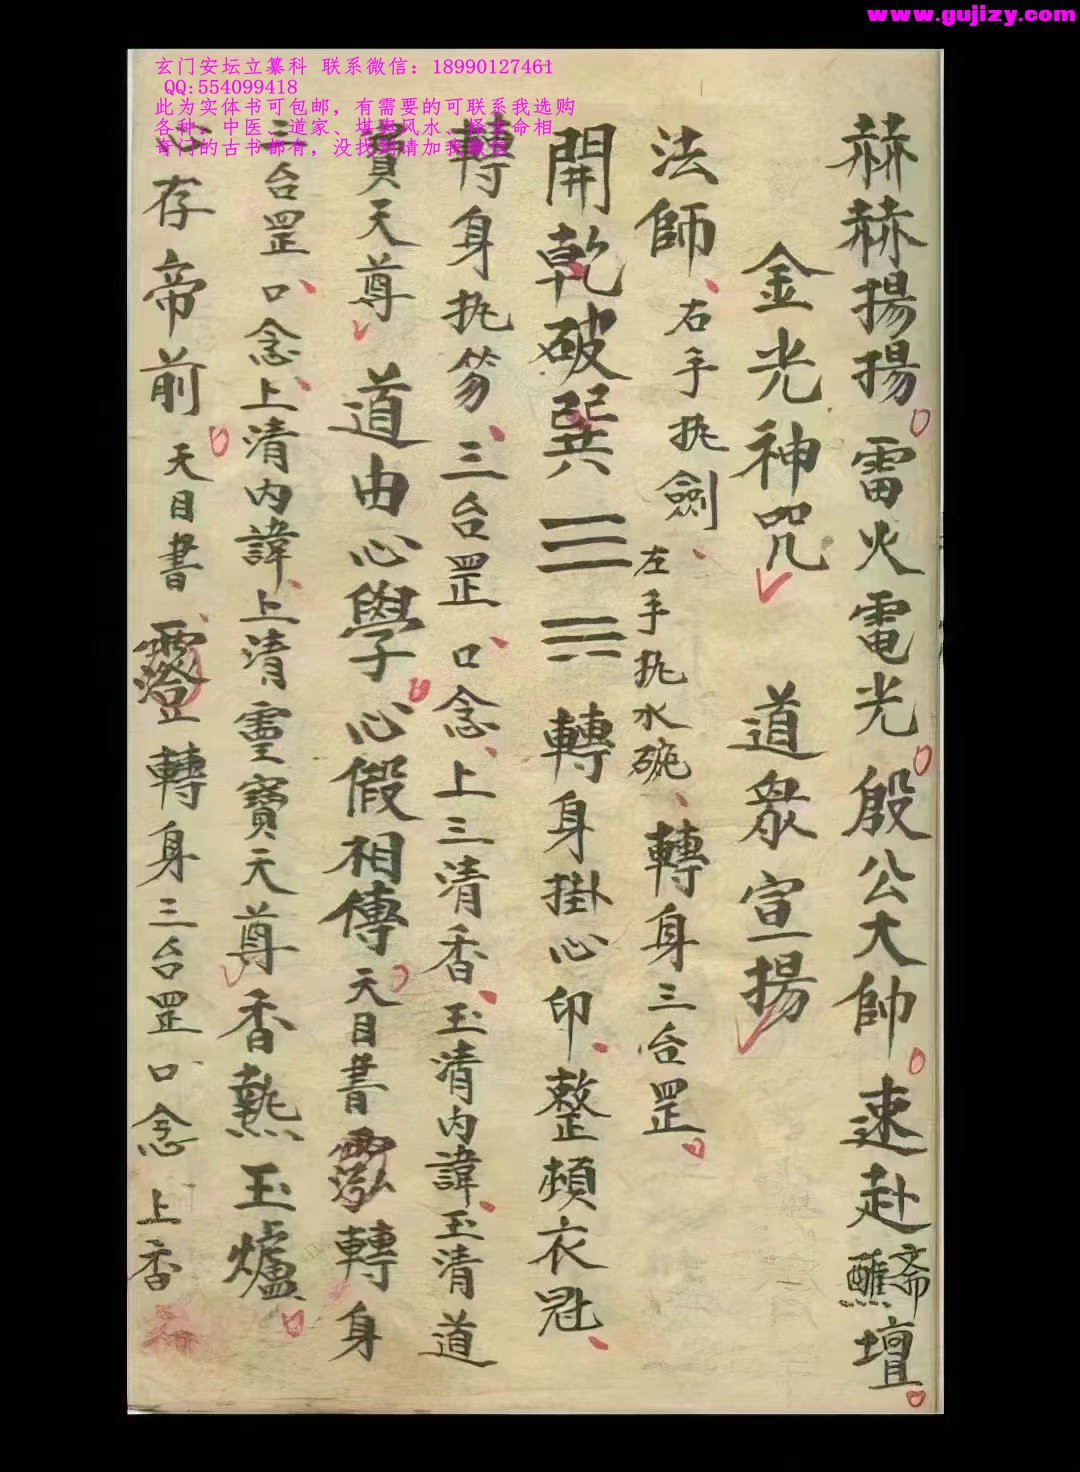 www.gujizy.com
玄门安坛立纂科 联系微信：18990127461
QQ:554099418
此为实体书可包邮，有需要的可联系我选购
各种：中医、道家、堪舆风水、择吉命相
奇门的古书都有，没找到请加我微信
赫赫揚揚雷火電光殷公大帥速赴齋醮壇
金光神咒 道衆宣揚
法師右手执劍左手执水碗轉身三台罡
開乾破巽☰☴轉身掛心印整頓衣冠
轉身执笏三台罡口念上三清香玉清内諱玉清道
寶天尊 道由心學心假相傳天目書 轉身
三台罡口念上清内諱上清靈寶天尊香熱玉爐
心存帝前天目書 轉身三台罡口念上香